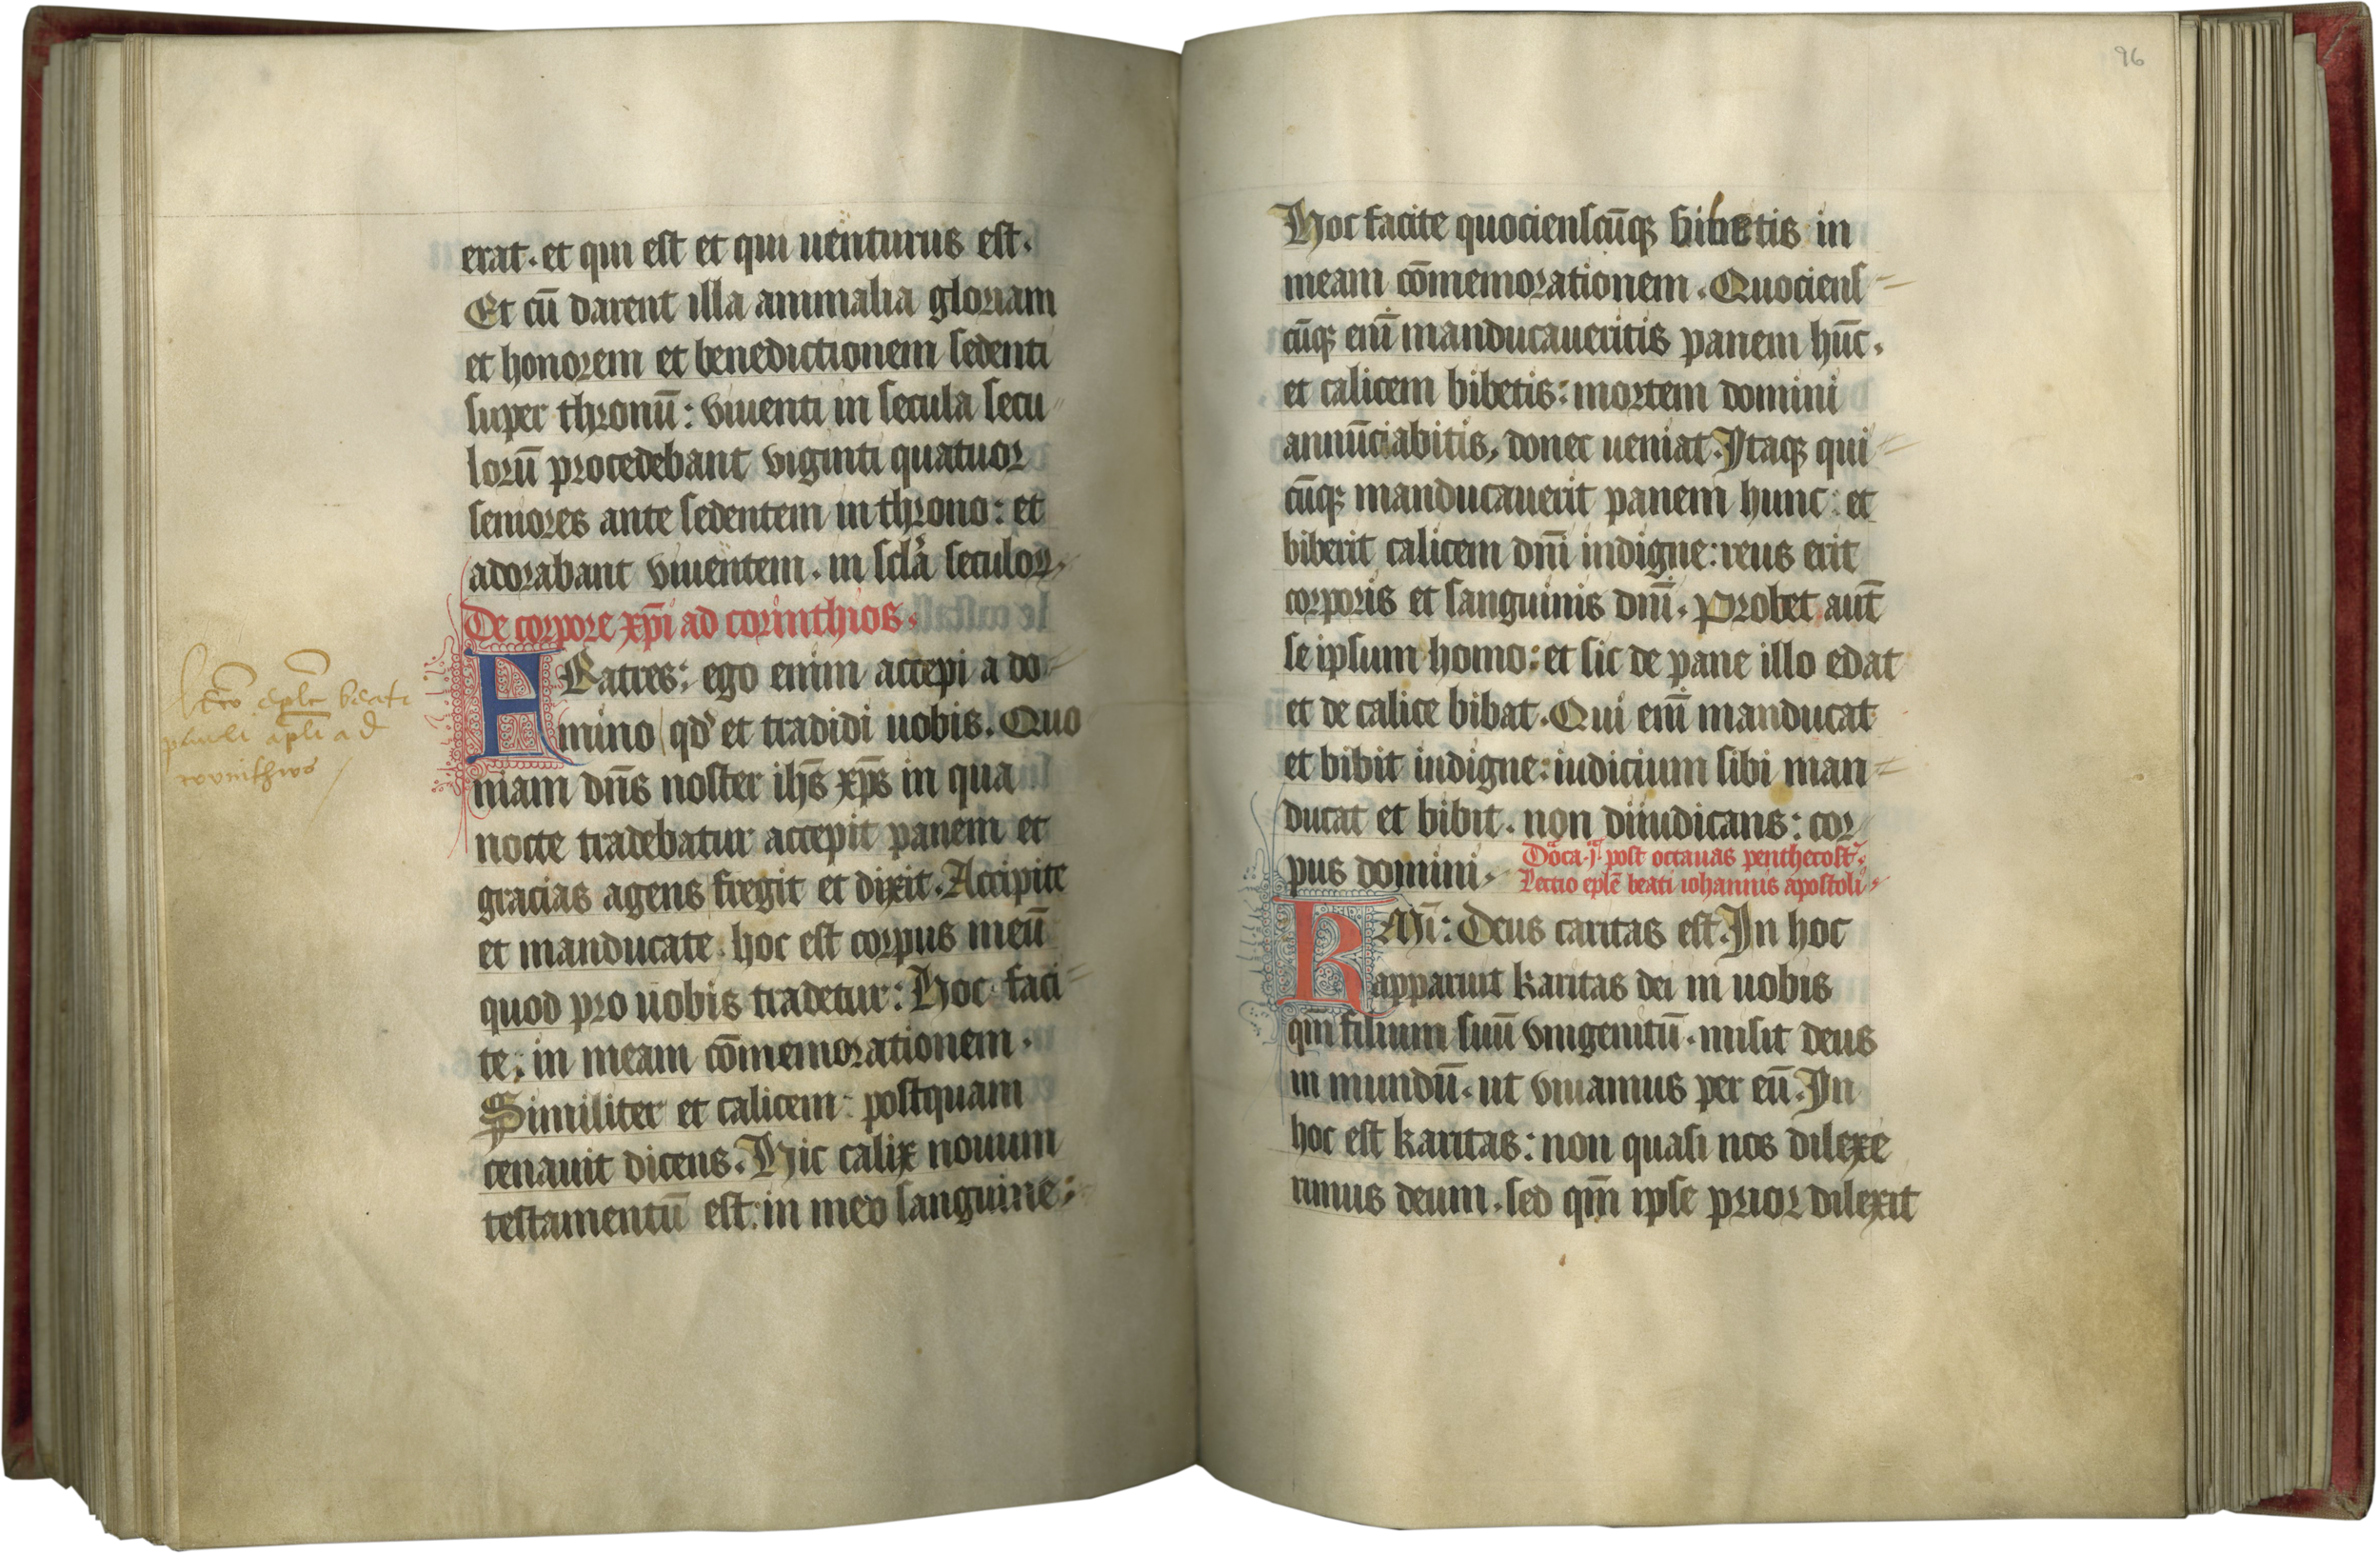 erat. et qui est et qui uenturus est.
Et cū darent illa animalia gloriam
et honorem et benedictionem sedenti
super thronū: viuenti in secula secu
lorū procedebant viginti quatuor
seniores ante sedentem in throno: et
adorabant viuentem. in scl̄a seculoꝝ.
De corpore xp̄i ad corinthios.
FRatres: ego enim accepi a do-
mino qd' et tradidi uobis. Quo
niam dn̄s noster ih̄s xp̄s in qua
nocte tradebatur accepit panem et
gracias agens fregit et dixit. Accipite
et manducate. hoc est corpus meū
quod pro uobis tradetur: Hoc faci-
te: in meam cōmemorationem.
Similiter et calicem: postquam
cenauit dicens. Hic calix nouum
testamentū est: in meo sanguine:
lctio eple beati
pauli apli ad
corinthios
96
Hoc facite quociensciūqꝫ bibetis in
meam cōmemorationem. Quociens-
cūqꝫ enī manducaueritis panem hūc.
et calicem bibetis: mortem domini
annūciabitis, donec ueniat. Itaqꝫ qui-
cūqꝫ manducauerit panem hunc: et
biberit calicem dn̄i indigne: reus erit
corporis et sanguinis dn̄i. Probet aut̄
se ipsum homo: et sic de pane illo edat
et de calice bibat. Qui enī manducat
et bibit indigne: iudicium sibi man-
ducat et bibit. non diiudicans: cor
pus domini.
Dōca .j. post octauas penthecost'.
Lectio epl̄e beati iohannis apostoli.
KMī: Deus caritas est. In hoc
apparuit karitas dei in uobis
qm̄ filium suū vnigenitū. misit deus
in mundū. ut viuamus per eū. In
hoc est karitas: non quasi nos dilexe
rimus deum. sed qm̄ ipse prior dilexit